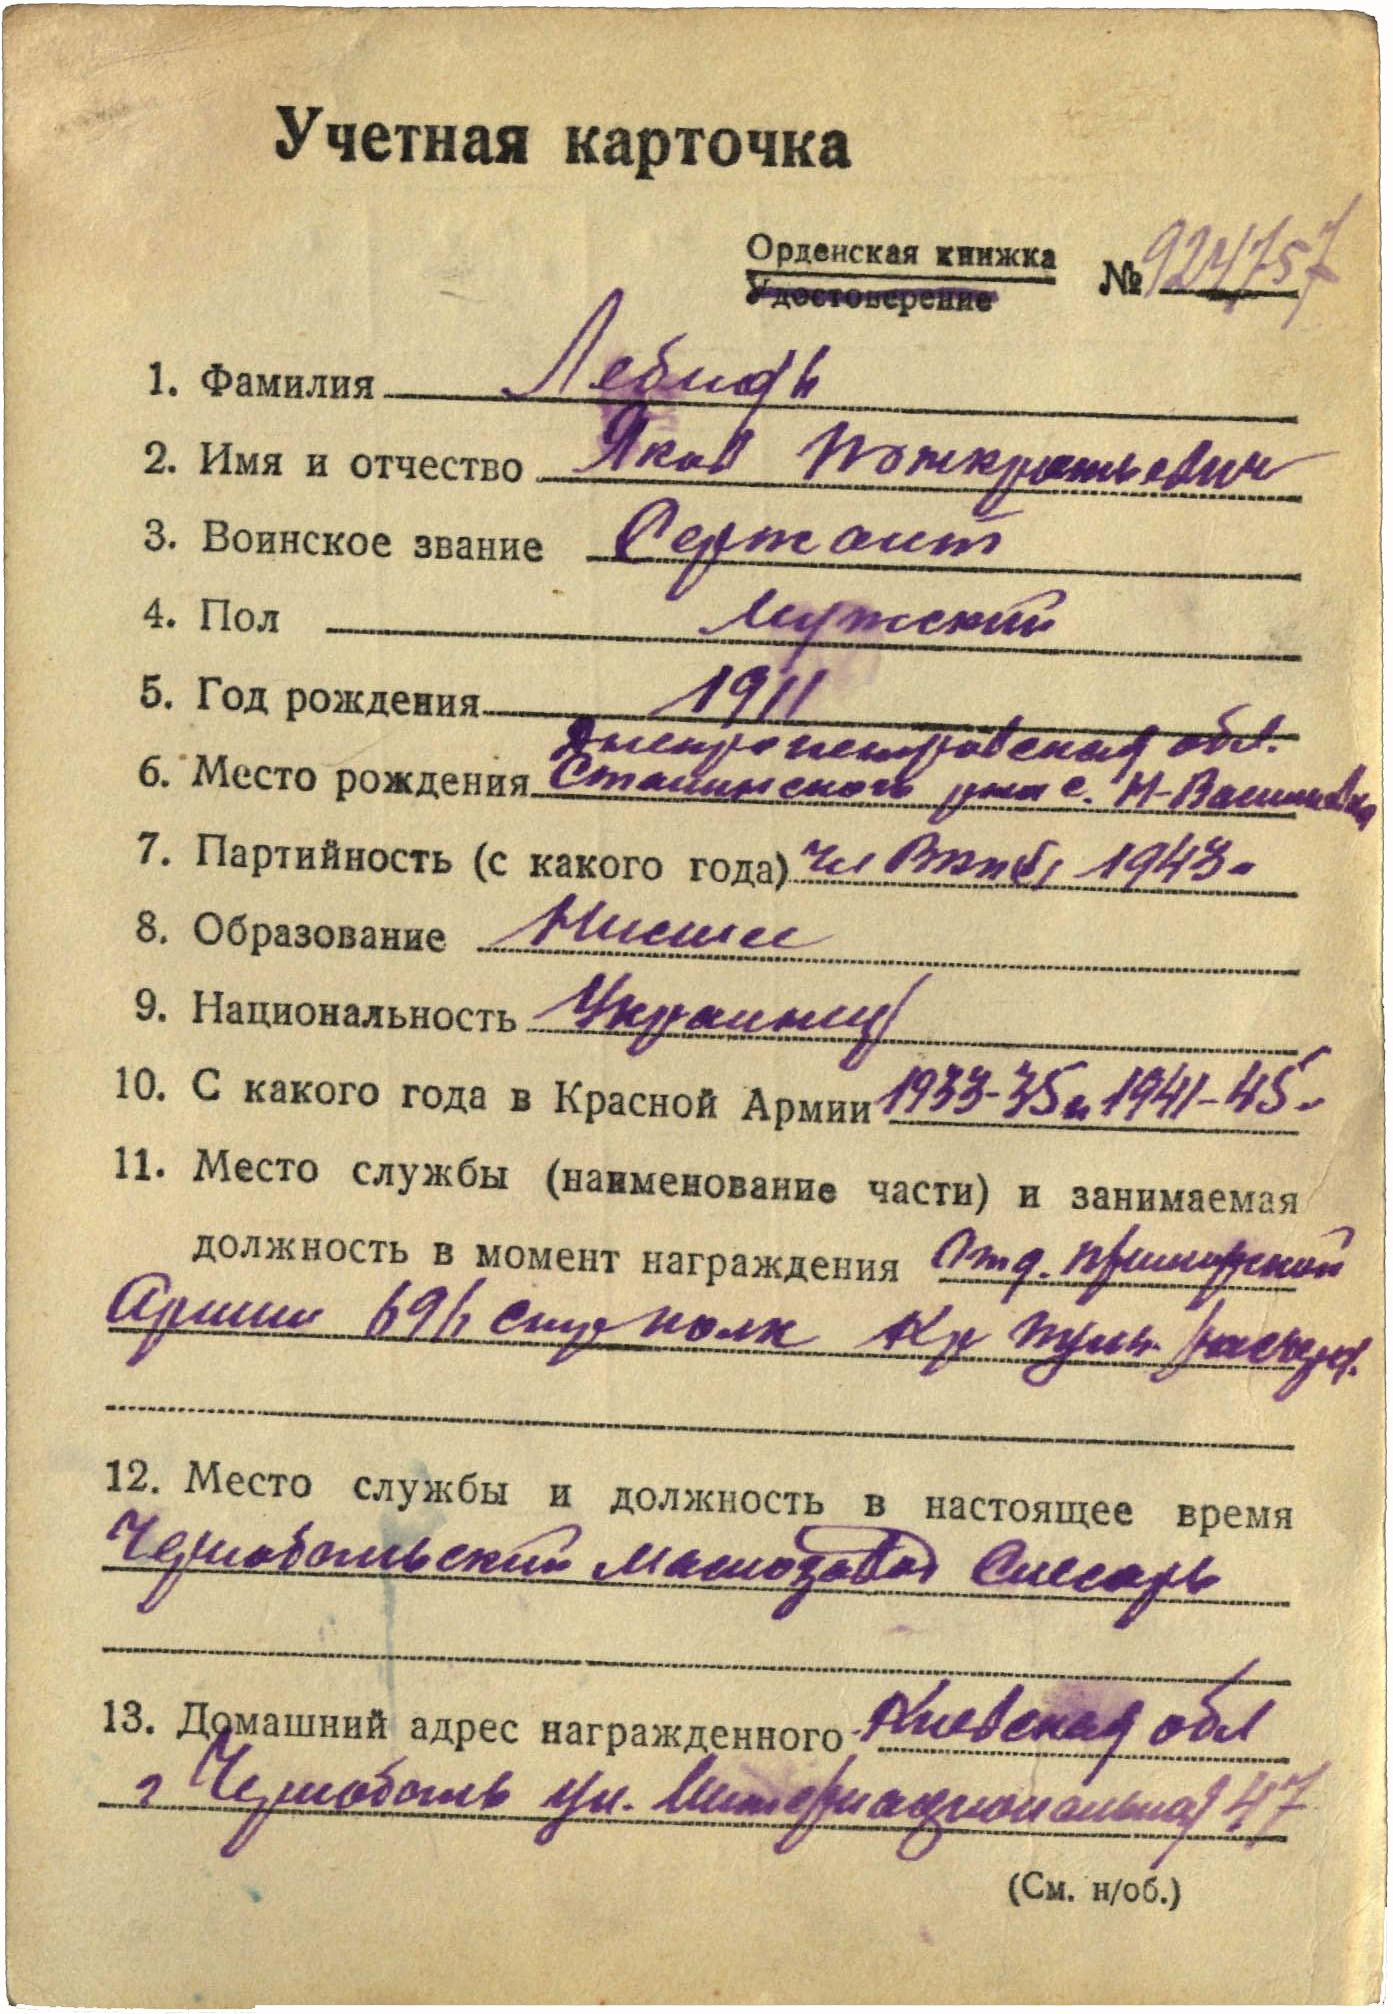 Учетная карточка
Орденская книжка
Удостоверение
№ 924757
1. Фамилия Лебидь
2. Имя и отчество Яков
3. Воинское звание Сержант
4. Пол Мужский
5. Год рождения 1911
Днепропетровская обл.
6. Место рождения Сталинского р-на с. Н-Васильевка
7. Партийность (с какого года) чл ВКП(б) 1943 г
8. Образование Нисшее
9. Национальность Украинец
10. С какого года в Красной Армии 1933-35 и 1941-45 г
11. Место службы (наименование части) и занимаемая
должность в момент награждения Отд. приморской
Армии 691 стр полк Ком пульн.
12. Место службы и должность в настоящее время
Чернобольский Машозавод Слесарь
13. Домашний адрес награжденного Киевская обл
г Черноболь ул. Интернациональная 47
(См. н/об.)